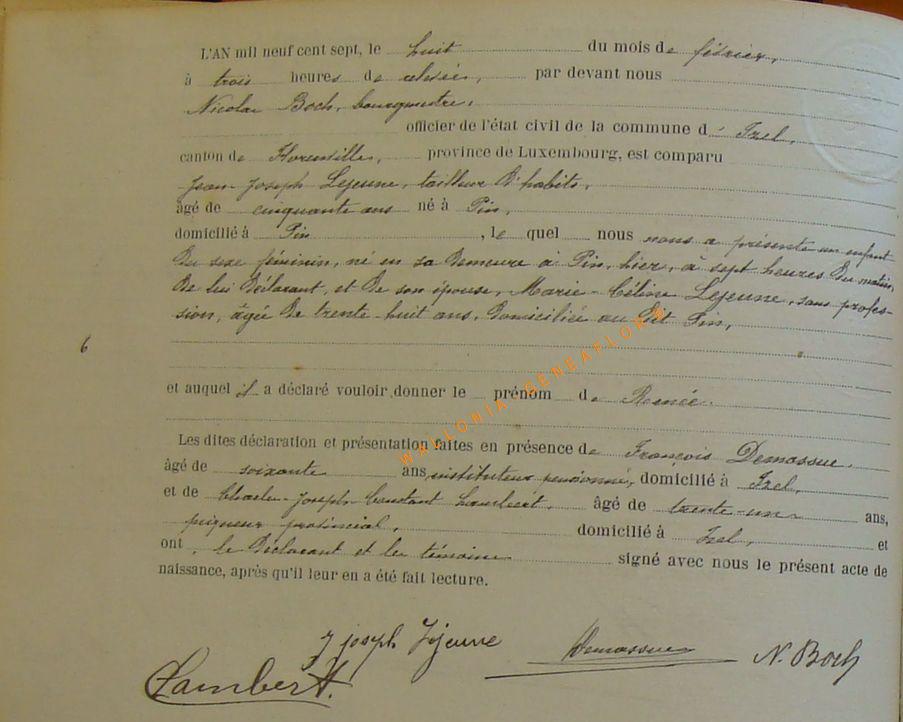 L'AN mil neuf cent sept, le huit du mois de février,
à trois heures de relevée, par devant nous
Nicolas Boch, bourgmestre,
officier de l'état civil de la commune d' Izel,
canton de Florenville, province de Luxembourg, est comparu
Jean-Joseph Lejeune, tailleur d'habits,
âgé de cinquante ans né à Pin,
domicilié à Pin, le quel nous nous a présenté un enfant
du sexe féminin, né en sa demeure à Pin, hier, à sept heures du matin,
de lui déclarant, et de son épouse, Marie-Céline Lejeune, sans profes-
sion, âgée de trente-huit ans, domiciliée au dit Pin,
6
et auquel il a déclaré vouloir donner le prénom de Renée.
Les dites déclaration et présentation faites en présence de François Demassue,
âgé de soixante ans, instituteur pensionné, domicilié à Izel,
et de Charles-Joseph-Constant Lambert, âgé de trente-un ans,
piqueur provincial, domicilié à Izel, et
ont, le déclarant et les témoins signé avec nous le présent acte de
naissance, après qu'il leur en a été fait lecture.
J joseph Lejeune
Demassue
N. Boch
Lambert.
WALLONIA-GENEAFLORE